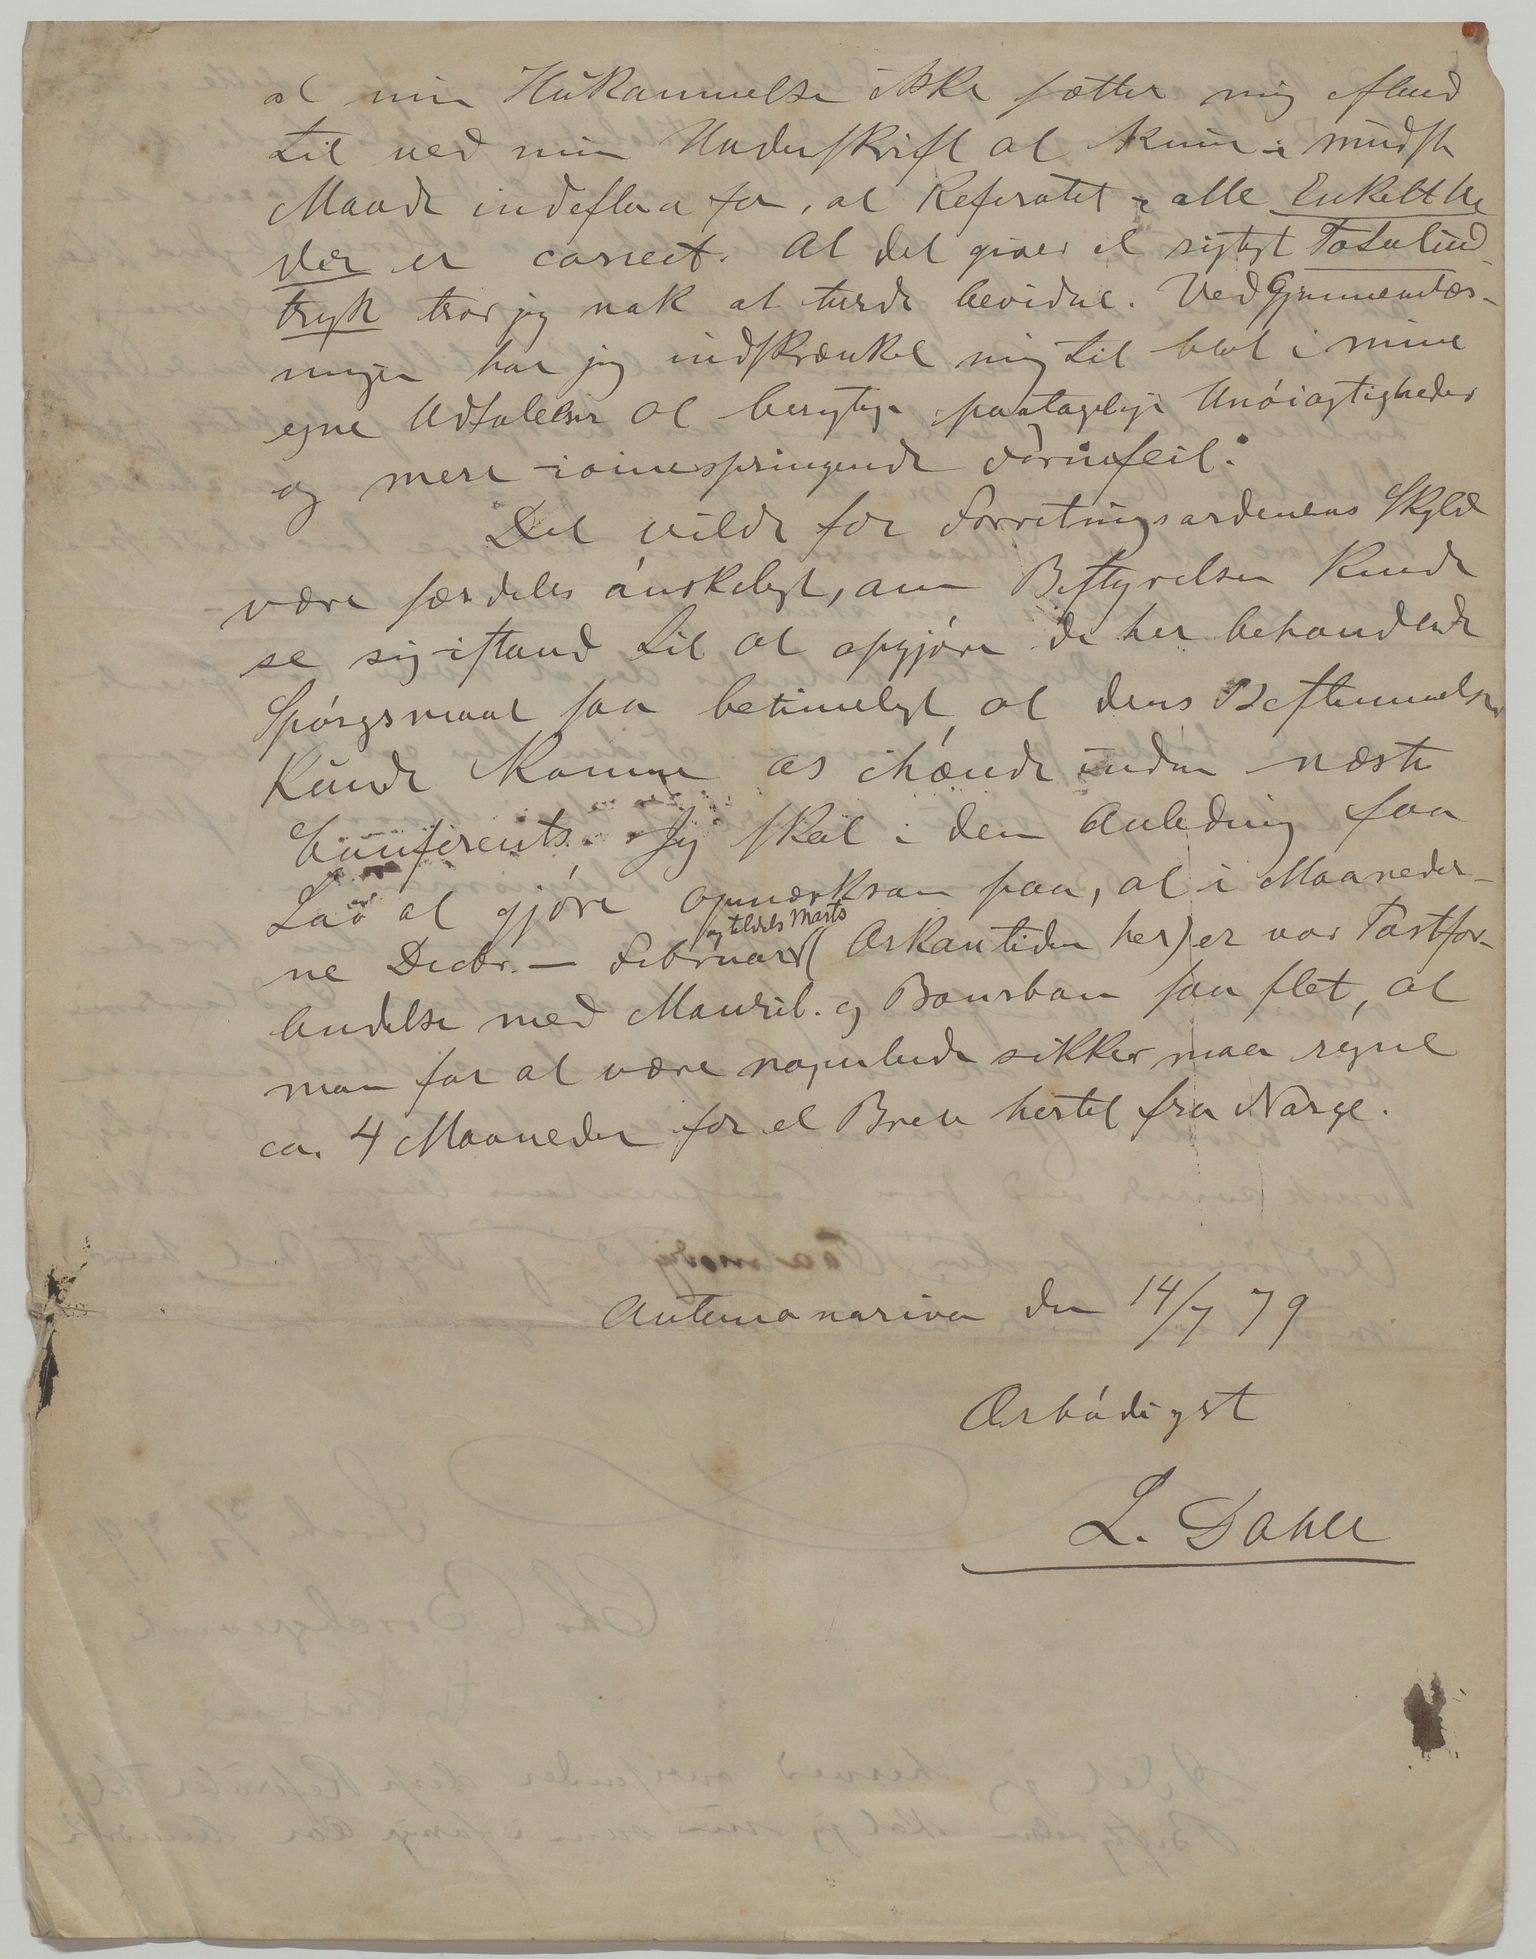 at min Hukammelse ikke sætter mig istand
til ved min Underskrift at kunne i mindste
Maade indestaa for, at Referatet i alle Enkelthe
der er correct. At det giver et rigtigt Totalind-
tryk tror jeg nok at turde bevidne. Ved Gjennemlæs-
ningen har jeg indskrænket mig til blot i mine
egne Udtalelser at berigtige paatagelige Unöiagtigheder
og mere iöinespringende Formfeil.
Det vilde for Forretningsordenens Skyld
være særdeles önskeligt, om Bestyrelsen kunde
se sig istand til at opgjöre de her behandlede
Spörgsmaal saa betimeligt, at dens Bestemmelser
kunde komme os ihænde inden næste
Conferents. Jeg skal i den Anledning faa
Lov at gjöre opmærksom paa, at i Maaneder-
ne Decbr. — Februar (og tildels Marts
Orkantiden her) er vor Postfor-
bindelse med Maurit. og Bourbon saa slet, at
man for at være nogenlunde sikker maa regne
ca. 4 Maaneder for et Brev hertil fra Norge.
Antananarivo den 14/7 79
Ærbödigst
L. Dahle